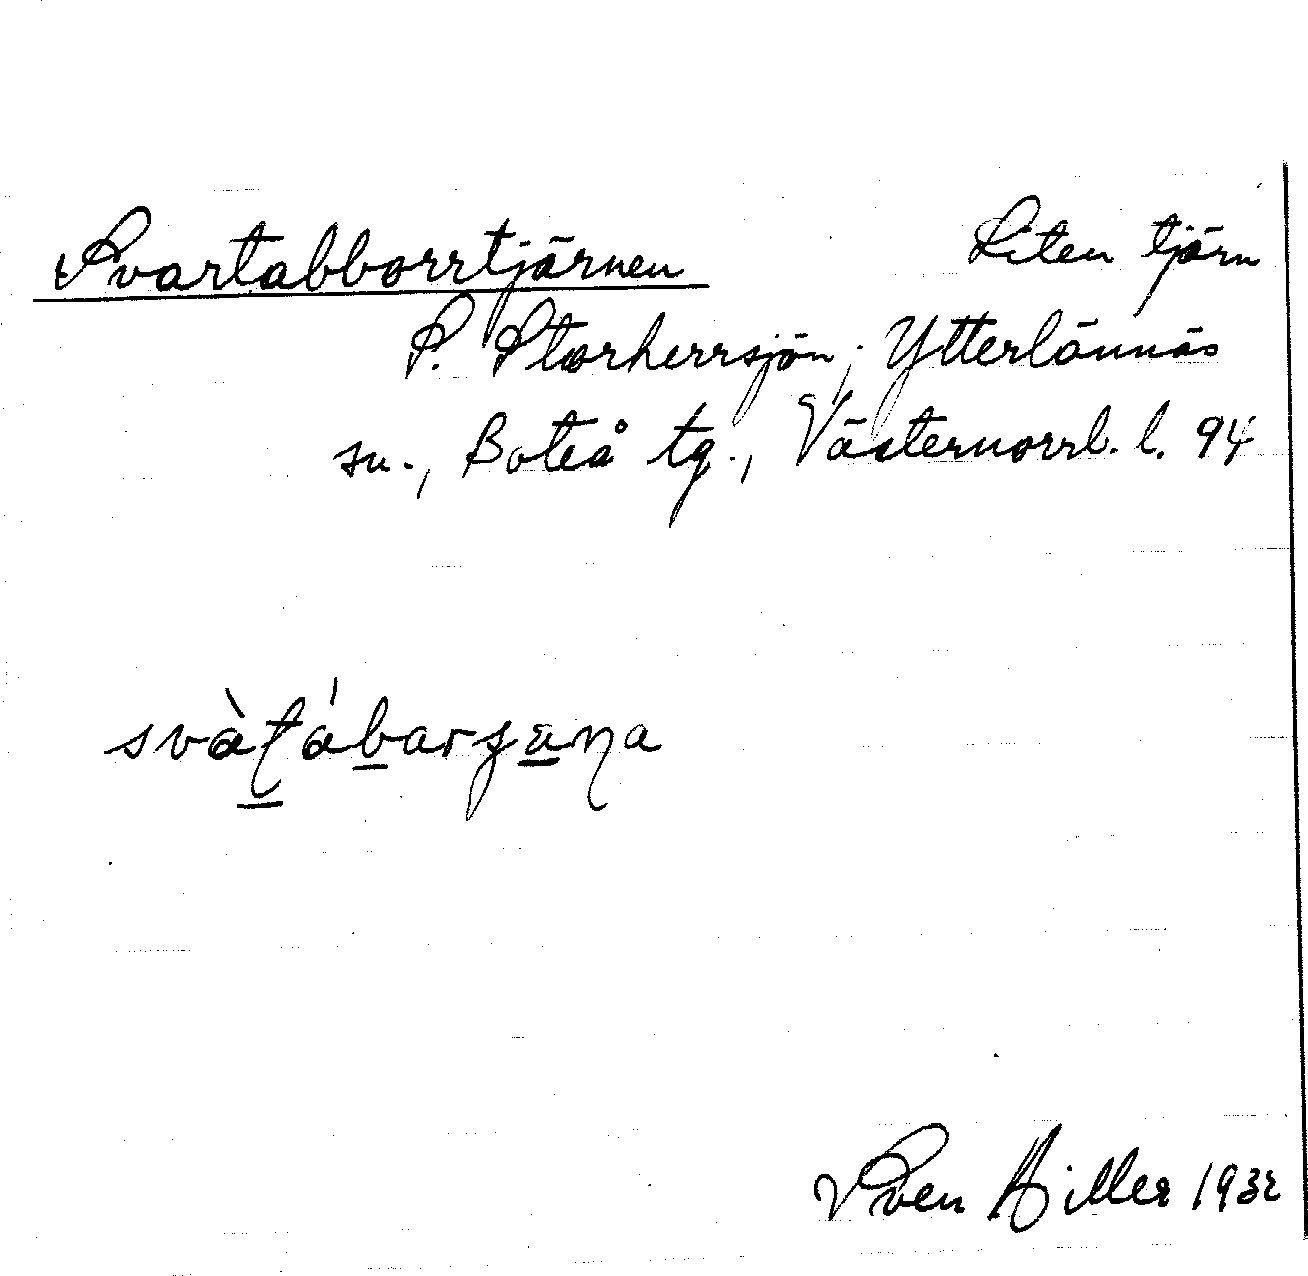 Svartabborrtjärnen Liten tjärn
S. Storherrsjön, Ytterlännäs
sn., Boteå tg., Västernorrl. l. 94
Sven Hiller 1932